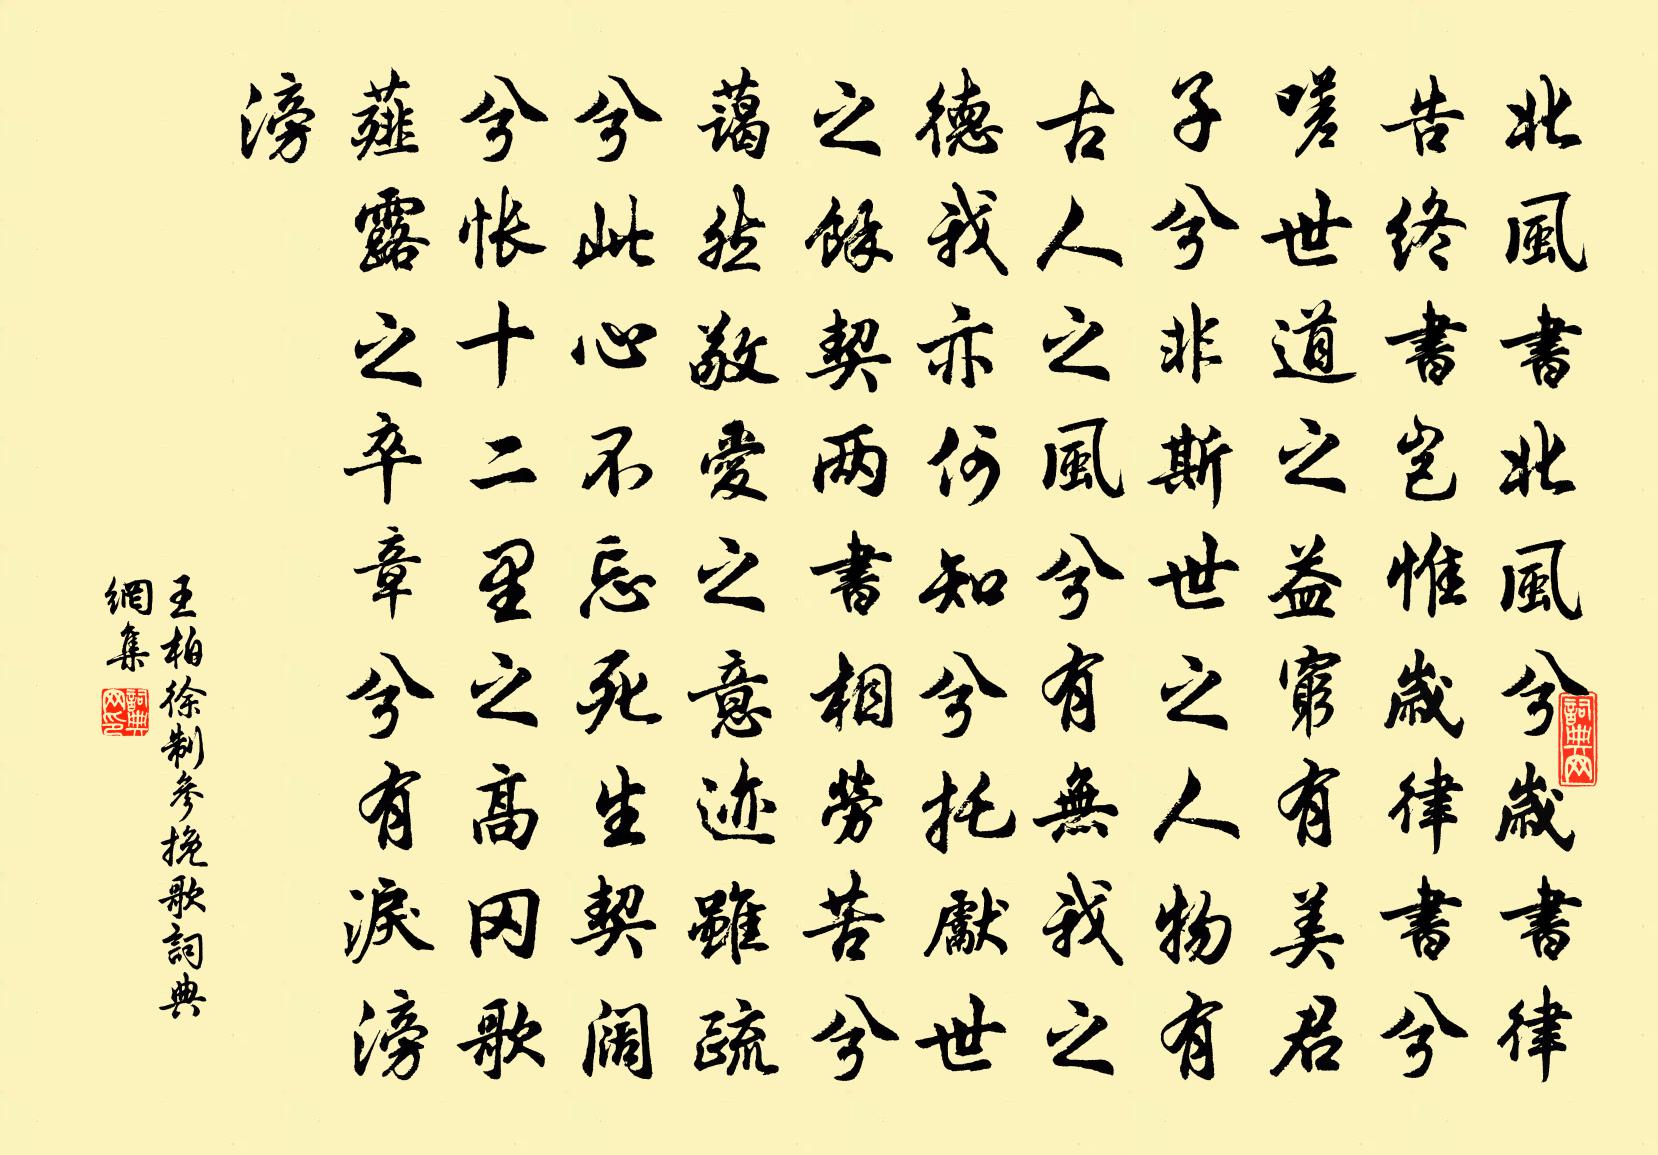 北風書北風兮歲書律
告終書豈惟歲律書兮
嗟世道之益窮有美君
子兮非斯世之人物有
古人之風兮有無我之
德我亦何知兮托獻世
之餘契两書相勞苦兮
藹然敬愛之意迹雖疏
兮此心不忘死生契阔
兮怅十二里之高冈歌
薤露之卒章兮有淚滂
滂
王柏徐制參挽歌詞典
網集
詞典网
詞典网印